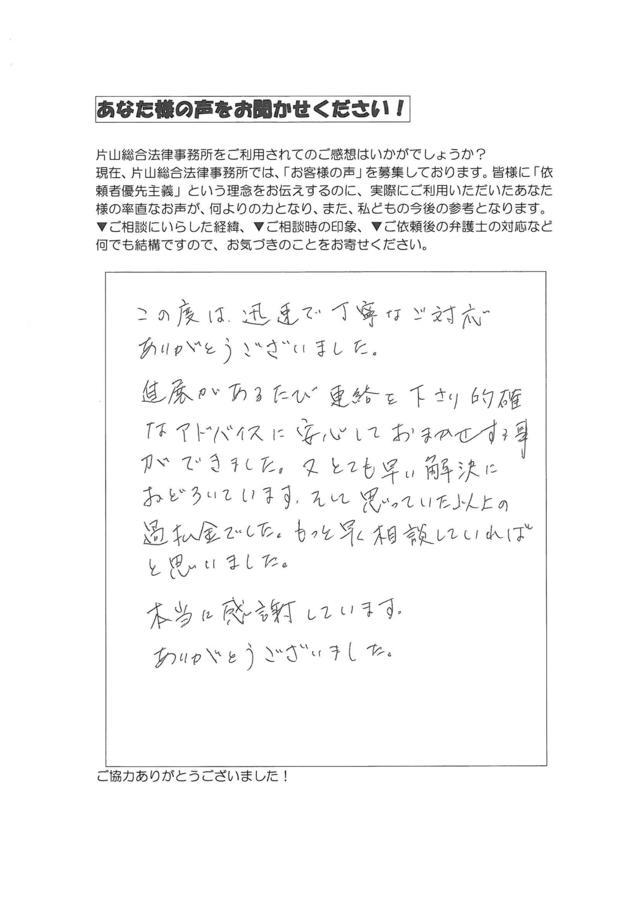 あなた様の声をお聞かせください！
片山総合法律事務所をご利用されてのご感想はいかがでしょうか？
現在、片山総合法律事務所では、「お客様の声」を募集しております。皆様に「依
頼者優先主義」という理念をお伝えするのに、実際にご利用いただいたあなた
様の率直なお声が、何よりの力となり、また、私どもの今後の参考となります。
▼ご相談にいらした経緯、▼ご相談時の印象、▼ご依頼後の弁護士の対応など
何でも結構ですので、お気づきのことをお寄せください。
この度は、迅速で丁寧なご対応
ありがとうございました。
進展があるたび連絡を下さり的確
なアドバイスに安心しておまかせする事
ができました。又とても早い解決に
おどろいています。そして思っていた以上の
過払金でした。もっと早く相談していれば
と思いました。
本当に感謝しています。
ありがとうございました。
ご協力ありがとうございました！